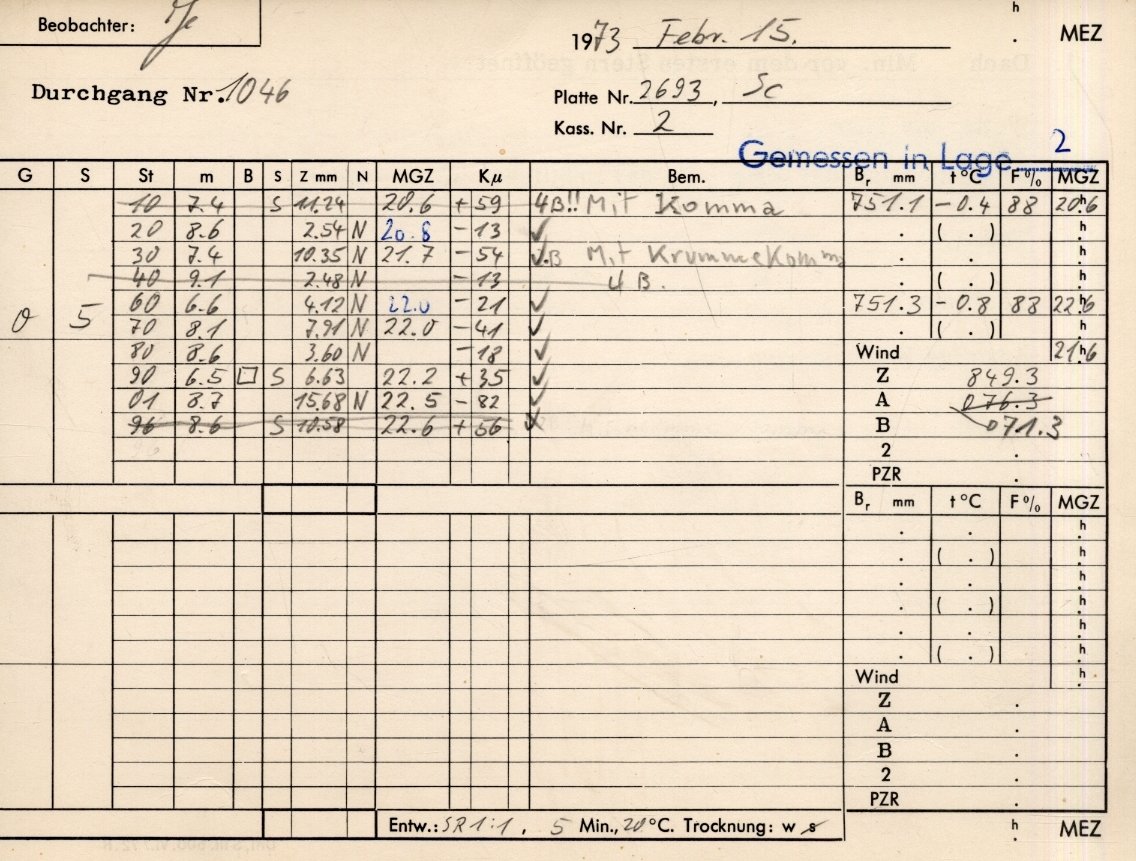 Beobachter: Je
h
1973 Febr. 15. . MEZ
Durchgang Nr. 1046
Platte Nr. 2693, Sc
Kass. Nr. 2
Gemessen in Lage 2
G S St m B S Z mm N MGZ Kμ Bem. Br mm t °C F% MGZ
10 7.4 S 11.24 20.6 +59 4B!! Mit Komma 751.1 -0.4 88 20h6
20 8.6 2.54 N 20.8 -13 ✓ . ( . ) h
30 7.4 10.35 N 21.7 -54 ✓.B Mit Krumme Komma . . h
40 9.1 2.48 N -13 4 B. . ( . ) h
0 5 60 6.6 4.12 N 22.0 -21 ✓ 751.3 -0.8 88 22h6
70 8.1 7.91 N 22.0 -41 ✓ . ( . ) h
80 8.6 3.60 N -18 ✓ Wind 21h6
90 6.5 □ S 6.63 22.2 +35 ✓ Z 849.3
01 8.7 15.68 N 22.5 -82 ✓ A 076.3
96 8.6 S 10.58 22.6 +56 ✓ B 071.3
96 2 .
PZR .
Br mm t °C F% MGZ
. . h
. ( . ) h
. . h
. ( . ) h
. . h
. ( . ) h
Wind h
Z .
A .
B .
2 .
PZR .
Entw.: SR1:1, 5 Min., 20 °C. Trocknung: w s
h
. MEZ